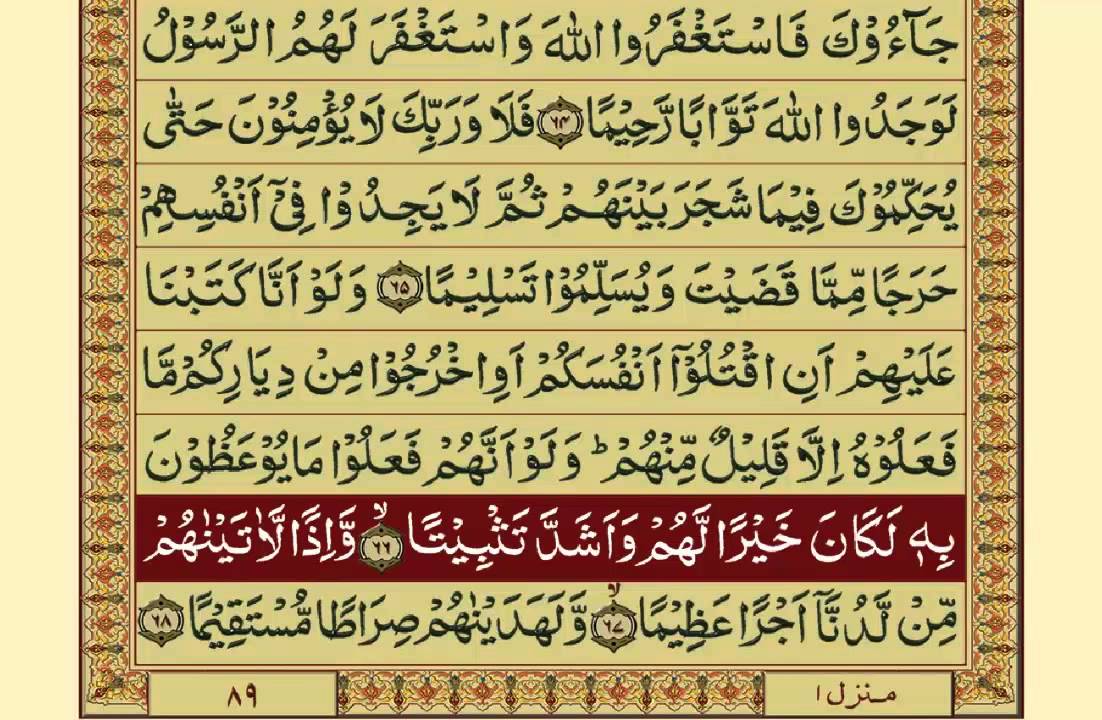 جَآءُوْكَ فَاسْتَغْفَرُوا اللّٰهَ وَاسْتَغْفَرَ لَهُمُ الرَّسُوْلُ
لَوَجَدُوا اللّٰهَ تَوَّابًا رَّحِيْمًا ۝۶۴ فَلَا وَرَبِّكَ لَا يُؤْمِنُوْنَ حَتّٰى
يُحَكِّمُوْكَ فِيْمَا شَجَرَ بَيْنَهُمْ ثُمَّ لَا يَجِدُوْا فِيْۤ اَنْفُسِهِمْ
حَرَجًا مِّمَّا قَضَيْتَ وَيُسَلِّمُوْا تَسْلِيْمًا ۝۶۵ وَلَوْ اَنَّا كَتَبْنَا
عَلَيْهِمْ اَنِ اقْتُلُوْۤا اَنْفُسَكُمْ اَوِ اخْرُجُوْا مِنْ دِيَارِكُمْ مَّا
فَعَلُوْهُ اِلَّا قَلِيْلٌ مِّنْهُمْ ؕ وَلَوْ اَنَّهُمْ فَعَلُوْا مَا يُوْعَظُوْنَ
بِهٖ لَكَانَ خَيْرًا لَّهُمْ وَاَشَدَّ تَثْبِيْتًا ۙ۝۶۶ وَّاِذًا لَّاٰتَيْنٰهُمْ
مِّنْ لَّدُنَّاۤ اَجْرًا عَظِيْمًا ۙ۝۶۷ وَّلَهَدَيْنٰهُمْ صِرَاطًا مُّسْتَقِيْمًا ۝۶۸
منزل ۱
۸۹